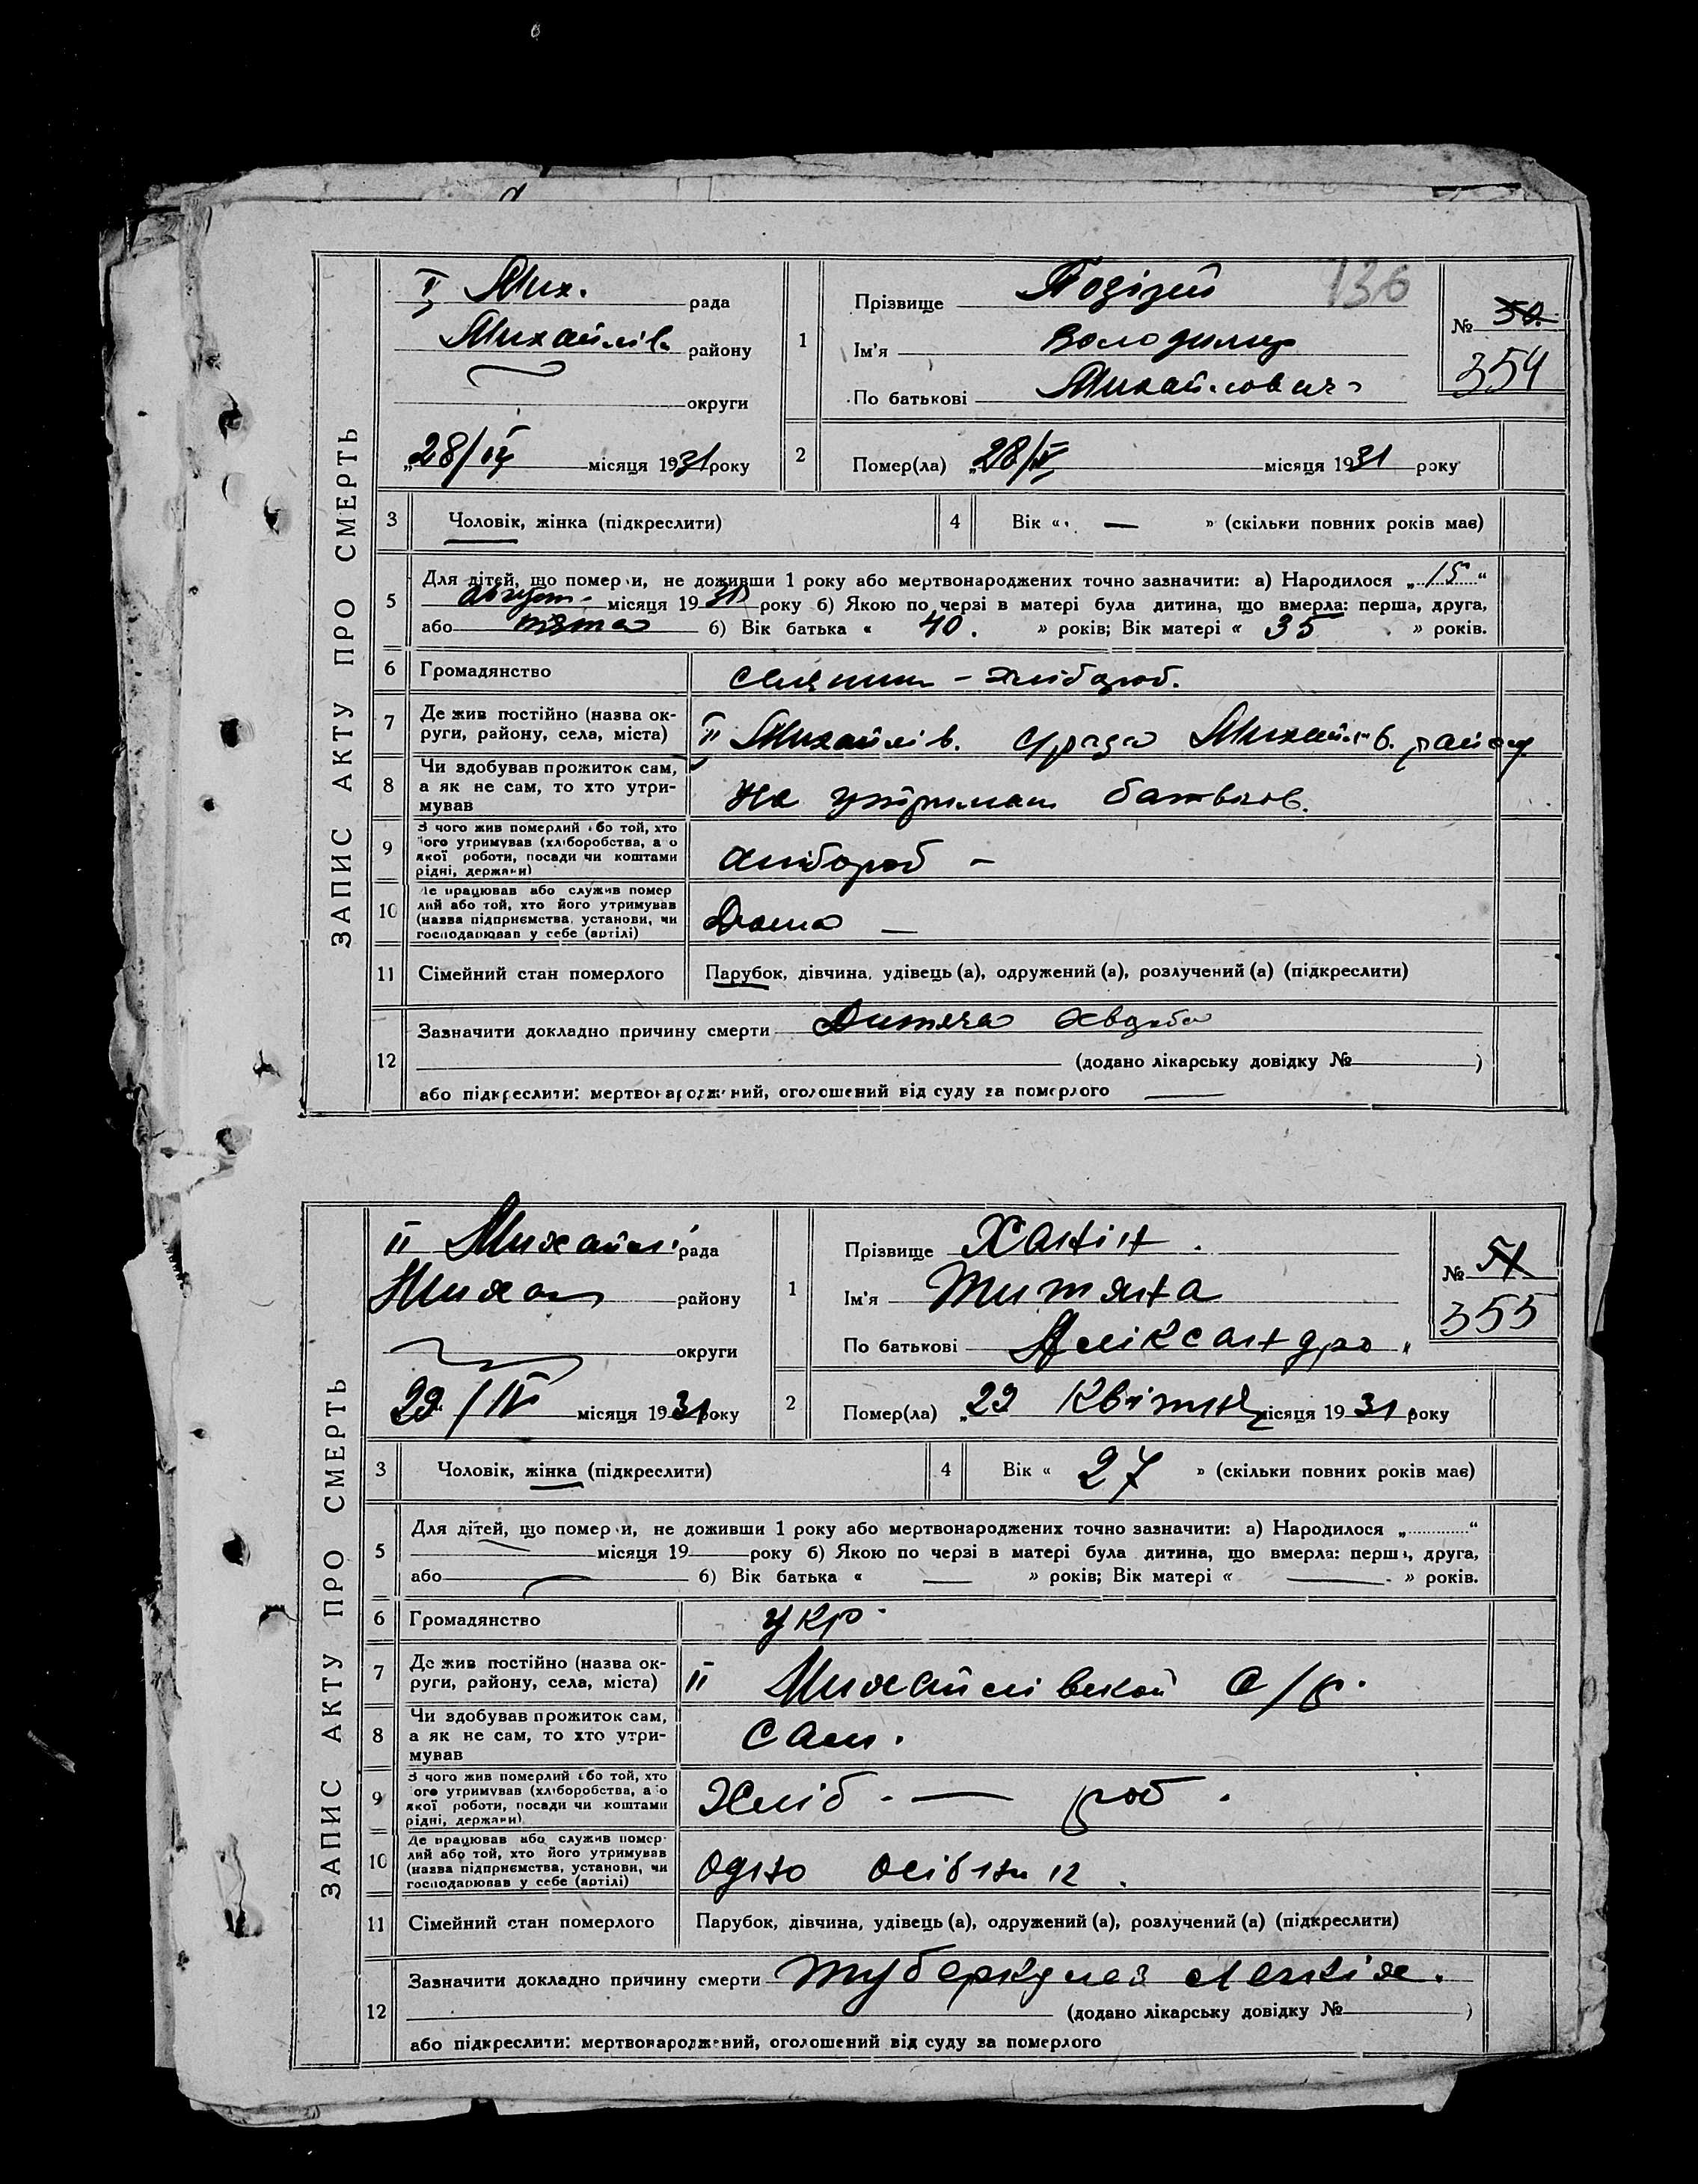 136
ЗАПИС АКТУ ПРО СМЕРТЬ
II Мих. рада
Михайлів. району
округи
„28/IV місяця 1931 року
1
Прізвище
Ім'я Володимир
По батькові Михайлович
№ 50.
354
2 Помер(ла) „28/IV місяця 1931 року
3 Чоловік, жінка (підкреслити)
4 Вік « — » (скільки повних років має)
5 Для дітей, що померли, не доживши 1 року або мертвонароджених точно зазначити: а) Народилося „15“
август місяця 19 року б) Якою по черзі в матері була дитина, що вмерла: перша, друга,
або пята б) Вік батька « 40. » років; Вік матері « 35 » років.
6 Громадянство селянин - хлібороб.
7 Де жив постійно (назва ок-
руги, району, села, міста) II Михайлів. с/рада Михайлів. району
8 Чи здобував прожиток сам,
а як не сам, то хто утри-
мував На утриман батьков.
9 З чого жив померлий або той, хто
його утримував (хліборобства, або
якої роботи, посади чи коштами
рідні, держави) хлібороб —
10 Де працював або служив помер
лий або той, хто його утримував
(назва підприємства, установи, чи
господарював у себе (артілі) Дома —
11 Сімейний стан померлого Парубок, дівчина, удівець (а), одружений (а), розлучений (а) (підкреслити)
12 Зазначити докладно причину смерти Дитяча
(додано лікарську довідку № )
або підкреслити: мертвонароджений, оголошений від суду за померлого
ЗАПИС АКТУ ПРО СМЕРТЬ
II Михайлі рада
Михай району
округи
29/IV місяця 1931 року
1
Прізвище Ханін.
Ім'я Титяна
По батькові Аліксандро
№ 51
355
2 Помер(ла) „29 Квітня місяця 1931 року
3 Чоловік, жінка (підкреслити)
4 Вік « 27 » (скільки повних років має)
5 Для дітей, що померли, не доживши 1 року або мертвонароджених точно зазначити: а) Народилося „ “
місяця 19 року б) Якою по черзі в матері була дитина, що вмерла: перша, друга,
або б) Вік батька « — » років; Вік матері « — » років.
6 Громадянство укр.
7 Де жив постійно (назва ок-
руги, району, села, міста) II Михайлівской с/р.
8 Чи здобував прожиток сам,
а як не сам, то хто утри-
мував Сам.
9 З чого жив померлий або той, хто
його утримував (хліборобства, або
якої роботи, посади чи коштами
рідні, держави) Хліб. — роб.
10 Де працював або служив помер-
лий або той, хто його утримував
(назва підприємства, установи, чи
господарював у себе (артілі) Одно
11 Сімейний стан померлого Парубок, дівчина, удівець (а), одружений (а), розлучений (а) (підкреслити)
12 Зазначити докладно причину смерти туберкулез легкіх.
(додано лікарську довідку № )
або підкреслити: мертвонароджений, оголошений від суду за померлого